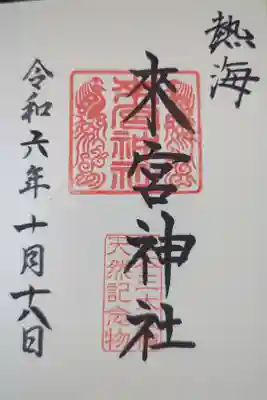 熱海
來宮神社
令和六年十月十八日
來宮神社
天然記念物